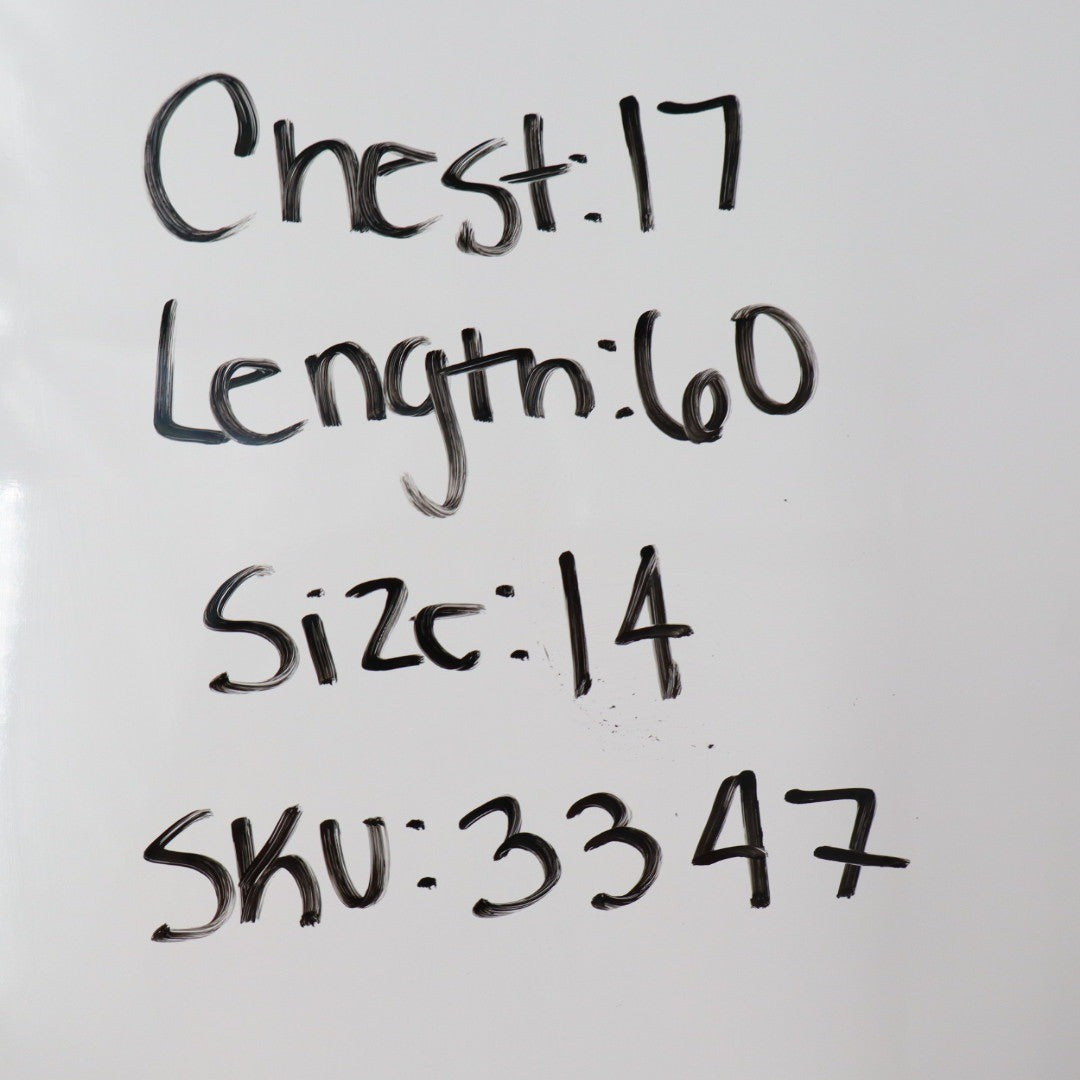 Chest: 17
Length: 60
Size: 14
SKU: 3347